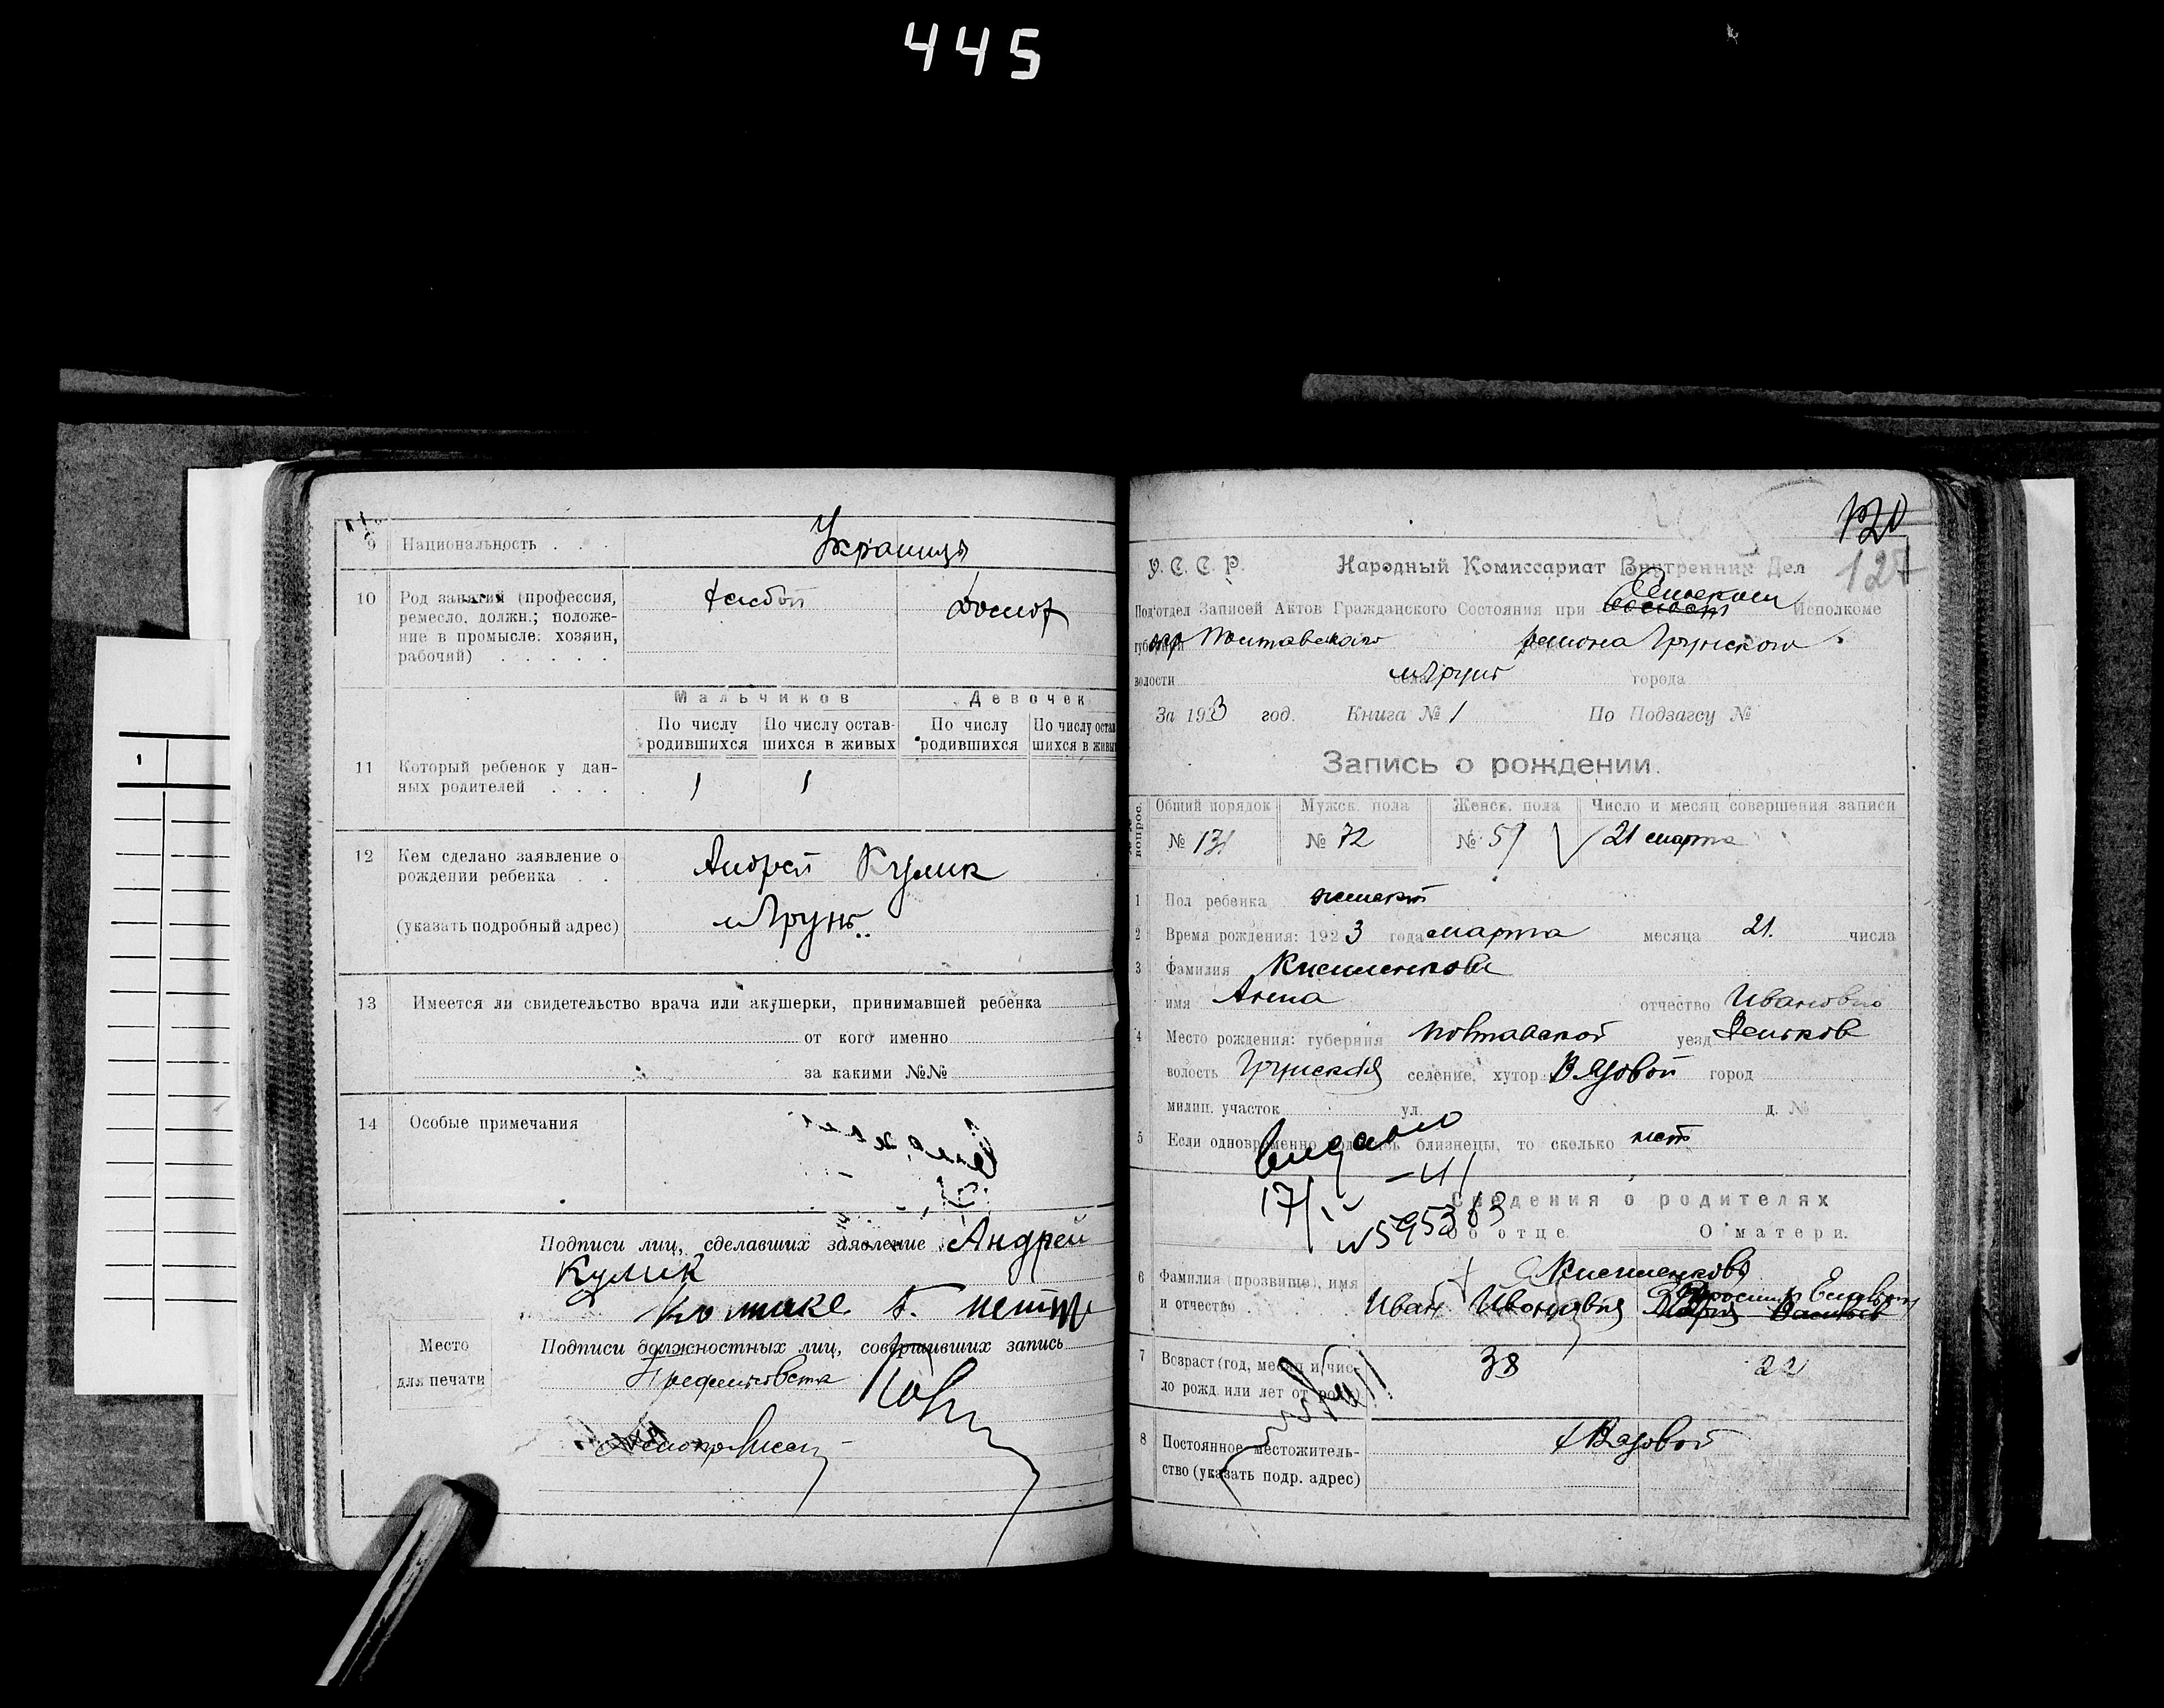 445
9 Национальность . . . Украинцы
10 Род занятий (профессия,
ремесло, должн.; положе-
ние в промысле: хозяин,
рабочий) . . . . .
Мальчиков Девочек
По числу родившихся По числу остав-шихся в живых По числу родившихся По числу остав шихся в живых
11 Который ребенок у дан-
ных родителей . . . 1 1
12 Кем сделано заявление о
рождении ребенка . . Андрей Кулик
(указать подробный адрес) м Грунь
13 Имеется ли свидетельство врача или акушерки, принимавшей ребенка
от кого именно
за какими №№
14 Особые примечания
Подписи лиц, сделавших заявление Андрей
Кулик
Место
для печати
Подписи должностных лиц, совершивших запись
120
127
У. С. С. Р. Народный Комиссариат Внутренних Дел
Подотдел Записей Актов Гражданского Состояния при Исполкоме
губернии Полтавского района Грунского
волости села м Грунь города
За 1923 год. Книга № 1 По Подзагсу №
Запись о рождении.
№ вопрос. Общий порядок Мужск. пола Женск. пола Число и месяц совершения записи
№ 131 № 72 № 59 21 марта
1 Пол ребенка женский
2 Время рождения: 1923 года марта месяца 21. числа
3 Фамилия
имя Анна отчество Ивановна
4 Место рождения: губерния Полтавской уезд Зеньков
волость Грунская селение, хутор Вязовой город
милиц. участок ул. д. №
5 Если одновременно родились близнецы, то сколько нет
Выдано
17/IV - 41
№595363
Сведения о родителях
Об отце О матери.
6 Фамилия (прозвище), имя
и отчество . Иван Иванович
7 Возраст (год, месяц и чис-
ло рожд. или лет от роду) 38 22
8 Постоянное местожитель-
ство (указать подр. адрес) х Вязовой